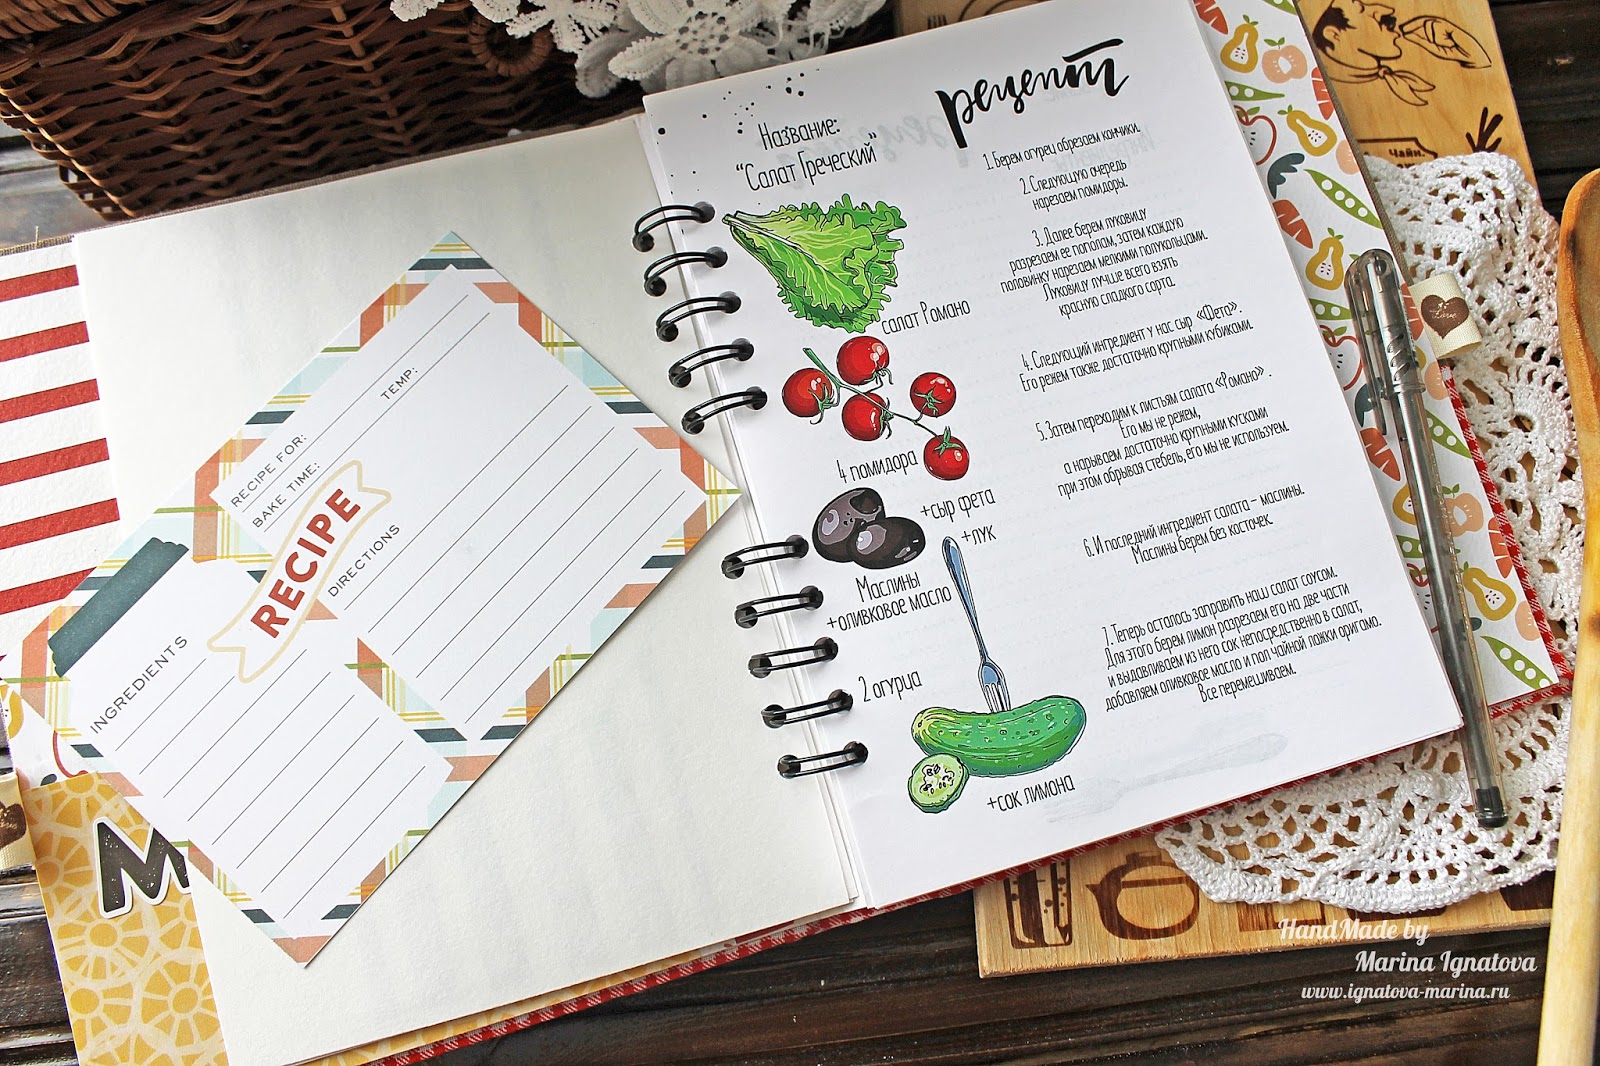 RECIPE FOR:
TEMP:
BAKE TIME:
RECIPE
DIRECTIONS
INGREDIENTS
М
рецепт
Название:
"Салат Греческий"
салат Романо
4 помидора
+сыр фета
+лук
Маслины
+оливковое масло
2 огурца
+сок лимона
1. Берем огурец обрезаем кончики.
2. Следующую очередь
нарезаем помидоры.
3. Далее берем луковицу
разрезаем ее пополам, затем каждую
половинку нарезаем мелкими полукольцами.
Луковицу лучше всего взять
красную сладкого сорта.
4. Следующий ингредиент у нас сыр «Фета».
Его режем также достаточно крупными кубиками.
5. Затем переходим к листьям салата «Романо».
Его мы не режем,
а нарываем достаточно крупными кусками
при этом обрывая стебель, его мы не используем.
6. И последний ингредиент салата – маслины.
Маслины берем без косточек.
7. Теперь осталось заправить наш салат соусом.
Для этого берем лимон разрезаем его на две части
и выдавливаем из него сок непосредственно в салат,
добавляем оливковое масло и пол чайной ложки оригамо.
Все перемешиваем.
Чай.
Love
HandMade by
Marina Ignatova
www.ignatova-marina.ru